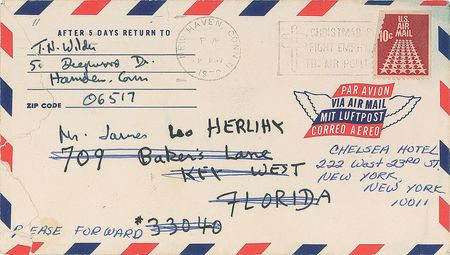 AFTER 5 DAYS RETURN TO
T.N. Wilder
50 Deepwood Dr.
Hamden, Conn
ZIP CODE 06517
NEW HAVEN CONN
PM
CHRISTMAS
FIGHT EMPH
TB, AIR POLL
U.S. AIR MAIL
10c
PAR AVION
VIA AIR MAIL
MIT LUFTPOST
CORREO AEREO
Mr. James Leo HERLIHY
709 Baker's Lane
KEY WEST
FLORIDA
#33040
PLEASE FORWARD
CHELSEA HOTEL
222 West 23RD ST.
NEW YORK,
NEW YORK
10011